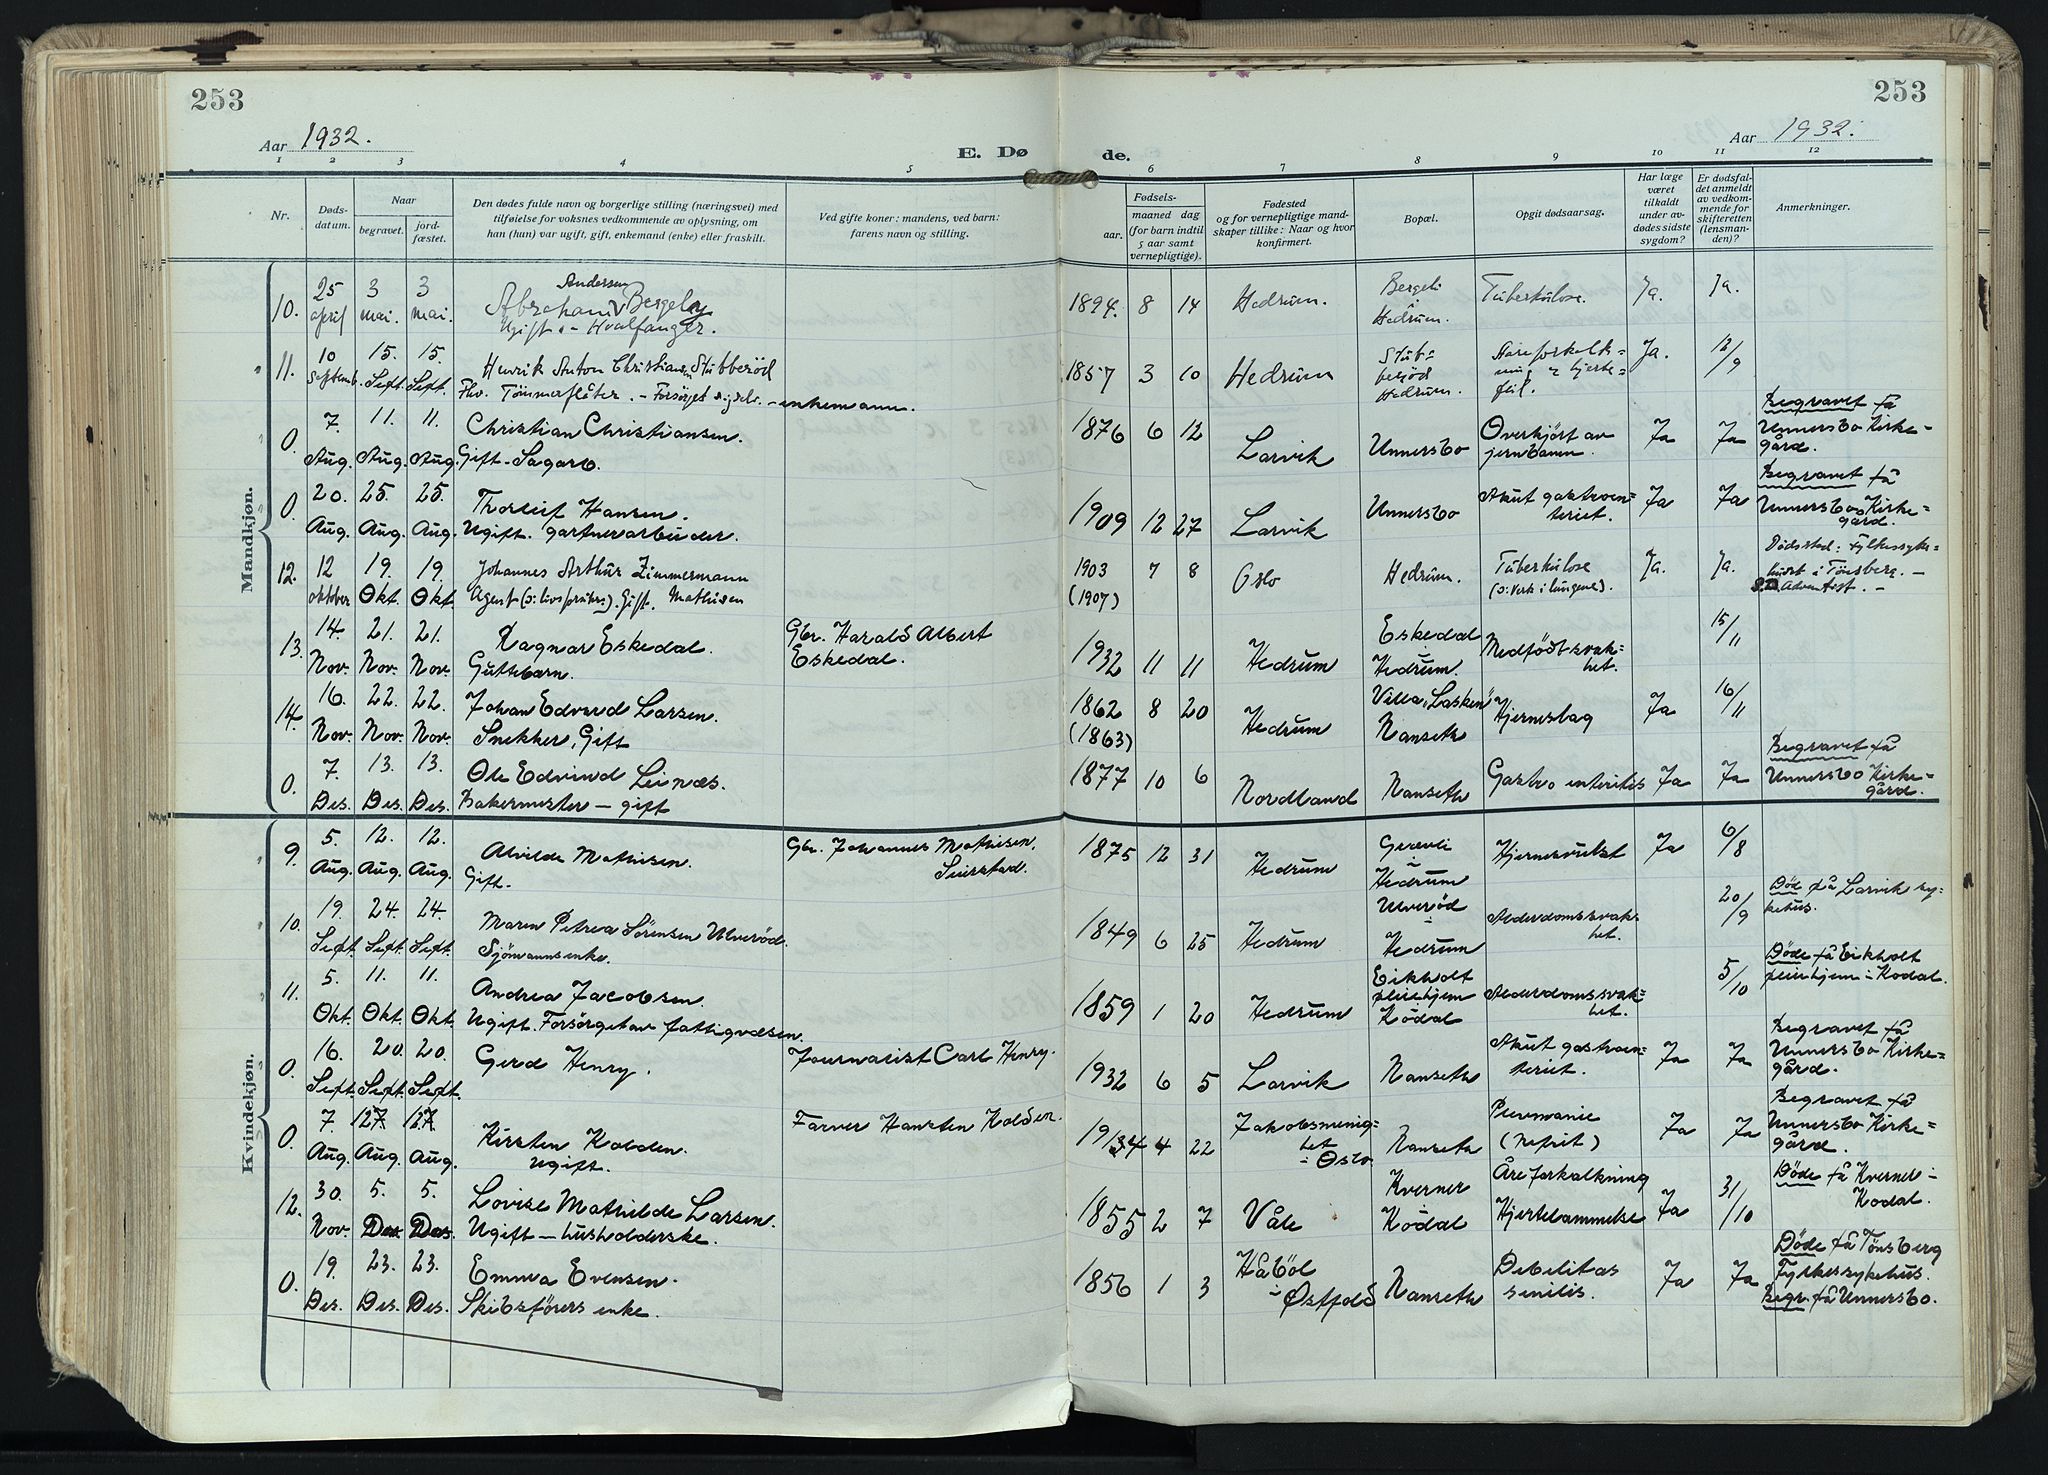 253
253
Aar 1932.
Aar 1932.
E. Dø de.
1 2 3 4 5 6 7 8 9 10 11 12
Nr.
Døds-
datum.
Naar
begravet.
jord-
fæstet.
Den dødes fulde navn og borgerlige stilling (næringsvei) med
tilføielse for voksnes vedkommende av oplysning, om
han (hun) var ugift, gift, enkemand (enke) eller fraskilt.
Ved gifte koner: mandens, ved barn:
farens navn og stilling.
Fødsels-
aar.
maaned dag
(for barn indtil
5 aar samt
vernepligtige).
Fødested
og for vernepligtige mand-
skaper tillike: Naar og hvor
konfirmert.
Bopæl.
Opgit dødsaarsag.
Har læge
været
tilkaldt
under av-
dødes sidste
sygdom?
Er dødsfal-
det anmeldt
av vedkom-
mende for
skifteretten
(lensman-
den)?
Anmerkninger.
Mandkjøn.
10. 25 april 3 mai. 3 mai.
Andersen
Abraham Bergeløy
Ugift. - Hvalfanger.
1894. 8 14 Hedrum. Bergeli Hedrum. Tuberkulose. Ja. Ja.
11. 10 Septemb. 15. Sept. 15. Sept.
Henrik Anton Christiansen Stubberød
Fhv. Tømmerfløter. - Forsørget sig selv. - enkemann.
1857 3 10 Hedrum Stub-
berød
Hedrum. Åreforkalk-
ning & hjerte-
feil. Ja. 12/9
0. 7. Aug. 11. Aug. 11. Aug.
Christian Christiansen.
Gift. Sagarb.
1876 6 12 Larvik Unnersbo Overkjørt av
jernbanen. Ja Ja Begravet på
Unnersbo Kirke-
gård.
0. 20. Aug. 25. Aug. 25. Aug.
Thorleif Hansen.
Ugift. gartnerarbeider.
1909 12 27 Larvik Unnersbo Akut gastroen-
teriet. Ja Ja Begravet på
Unnersbo Kirke-
gård.
12. 12 oktober 19. Okt. 19. Okt.
Johannes Arthur Zimmermann
Agent (o: livsforsikrs). Gift. Mathisen
1903
(1907) 7 8 Oslo Hedrum. Tuberkulose
(o: verk i lungene). Ja. Ja. Dødssted: Fylkessyke-
huset i Tønsberg. -
S.D. Adventist. -
13. 14. Nov. 21. Nov. 21. Nov.
Ragnar Eskedal.
Guttebarn.
Gbr. Harald Albert
Eskedal.
1932 11 11 Hedrum Eskedal
Hedrum. Medfødt svak-
het. 15/11
14. 16. Nov. 22. Nov. 22. Nov.
Johan Edvard Larsen.
Snekker, Gift
1862
(1863) 8 20 Hedrum Villa "Lasken"
Nanseth Hjerneslag Ja 16/11
0. 7. Des. 13. Des. 13. Des.
Ole Edvind Leinæs.
Bakermester - gift
1877 10 6 Nordland Nanseth Gastro enteritis Ja Ja Begravet på
Unnersbo Kirke-
gård.
Kvindekjøn.
9. 5. Aug. 12. Aug. 12. Aug.
Alvilde Mathisen.
Gift.
Gbr. Johannes Mathisen,
Seierstad.
1875 12 31 Hedrum Gjerevli
i
Hedrum Hjernesvulst Ja 6/8
10. 19. Sept. 24. Sept. 24. Sept.
Maren Petrea Sørensen Ulverød.
Sjømannsenke.
1849 6 25 Hedrum Ulverød
i
Hedrum Alderdomssvak-
het. 20/9 Død på Larvik sy-
kehus.
11. 5. Okt. 11. Okt. 11. Okt.
Andrea Jacobsen.
Ugift. Forsørget av fattigvæsen.
1859 1 20 Hedrum Eikholt
pleiehjem
Kodal Alderdomssvak-
het. 5/10 Døde på Eikholt
pleiehjem i Kodal.
0. 16. Sept. 20. Sept. 20. Sept.
Gerd Henry.
Journalist Carl Henry.
1932 6 5 Larvik Nanseth Akut gastroen-
teriet. Ja Ja Begravet på
Unnersbo Kirke-
gård.
0. 7. Aug. 12 Aug. 12 Aug.
Kirsten Kolden.
ugift.
Farver Hansten Kolden.
1934 4 22 Jakobsmenig-
het
i Oslo Nanseth Pnevmonie
(Nefrit) Ja Ja Begravet på
Unnersbo Kirke-
gård.
12. 30. Nov. 5. Des. 5. Des.
Lovise Mathilde Larsen.
Ugift - husholderske.
1855 2 7 Våle Kverner
i
Kodal Åreforkalkning
Hjertelammelse Ja 31/10 Døde på Kverner i
Kodal.
0. 19. Des. 23. Des. 23. Des.
Emma Evensen.
Skibsførers enke.
1856 1 3 Håbøl
i
Østfold Nanseth Debilitas
senilis. Ja Ja Døde på Tønsberg
Fylkessykehus.
Begr. på Unnersbo.